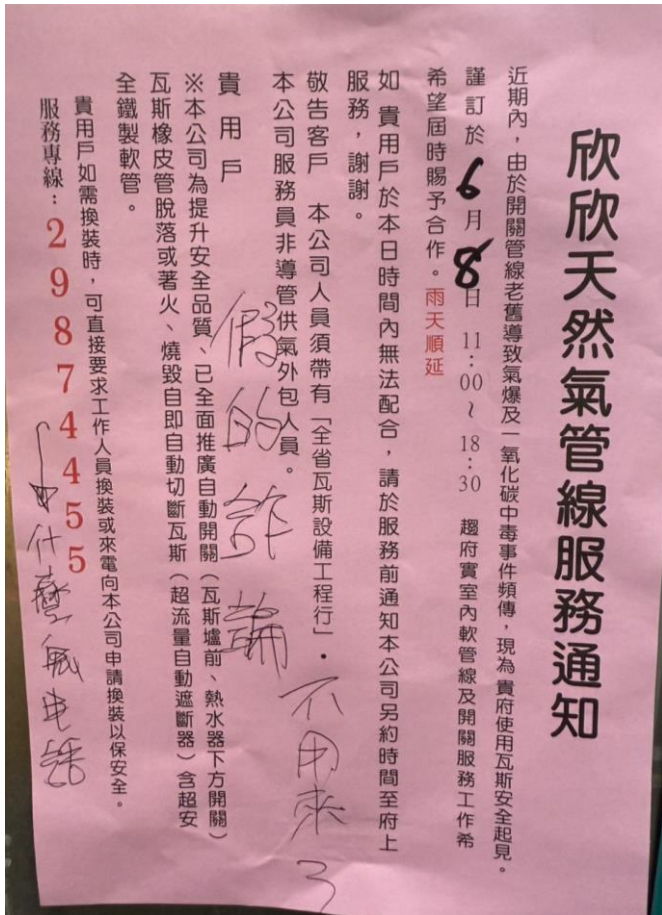 欣欣天然氣管線服務通知
近期內，由於開關管線老舊導致氣爆及一氧化碳中毒事件頻傳，現為 貴府使用瓦斯安全起見。
謹訂於6月8日 11:00~18:30 趨府實室內軟管線及開關服務工作希
希望屆時賜予合作。雨天順延
如 貴用戶於本日時間內無法配合，請於服務前通知本公司另約時間至府上
服務，謝謝。
敬告客戶 本公司人員須帶有「全省瓦斯設備工程行」．
本公司服務員非導管供氣外包人員。
貴用戶
※本公司為提升安全品質、已全面推廣自動開關（瓦斯爐前、熱水器下方開關）
瓦斯橡皮管脫落或著火、燒毀自即自動切斷瓦斯（超流量自動遮斷器）含超安
全鐵製軟管。
貴用戶如需換裝時，可直接要求工作人員換裝或來電向本公司申請換裝以保安全。
服務專線：29874455
假的詐騙
不用來了
什麼瓦电話